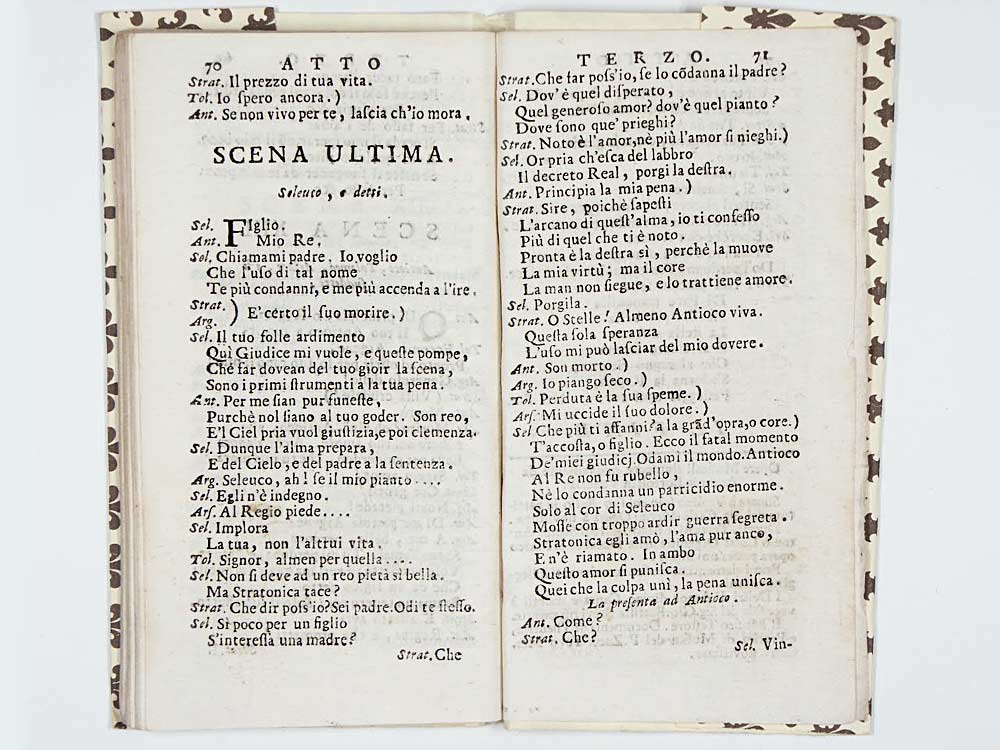 70 ATTO
Strat. Il prezzo di tua vita.
Tol. Io spero ancora. )
Ant. Se non vivo per te, laſcia ch'io mora.
SCENA ULTIMA.
Seleuco, e detti.
Sel. FIglio.
Ant. Mio Re.
Sel. Chiamami padre. Io voglio
Che l'uſo di tal nome
Te più condanni, e me più accenda a l'ire.
Strat. )
Arg. ) E' certo il ſuo morire. )
Sel. Il tuo folle ardimento
Quì Giudice mi vuole, e queſte pompe,
Che far dovean del tuo gioir la ſcena,
Sono i primi ſtrumenti a la tua pena.
Ant. Per me ſian pur funeſte,
Purchè nol ſiano al tuo goder. Son reo,
E'l Ciel pria vuol giuſtizia, e poi clemenza.
Sel. Dunque l'alma prepara,
E del Cielo, e del padre a la ſentenza.
Arg. Seleuco, ah! ſe il mio pianto ....
Sel. Egli n'è indegno.
Arſ. Al Regio piede....
Sel. Implora
La tua, non l'altrui vita.
Tol. Signor, almen per quella ....
Sel. Non ſi deve ad un reo pietà sì bella.
Ma Stratonica tace?
Strat. Che dir poſs'io? Sei padre. Odi te ſteſſo.
Sel. Sì poco per un figlio
S'intereſſa una madre?
Strat. Che
TERZO. 71
Strat. Che far poſs'io, ſe lo cõdanna il padre?
Sel. Dov'è quel diſperato,
Quel generoſo amor? dov'è quel pianto?
Dove ſono que' prieghi?
Strat. Noto è l'amor, nè più l'amor ſi nieghi.)
Sel. Or pria ch'eſca del labbro
Il decreto Real, porgi la deſtra.
Ant. Principia la mia pena. )
Strat. Sire, poichè ſapeſti
L'arcano di queſt'alma, io ti confeſſo
Più di quel che ti è noto.
Pronta è la deſtra sì, perchè la muove
La mia virtù; ma il core
La man non ſiegue, e lo trattiene amore.
Sel. Porgila.
Strat. O Stelle! Almeno Antioco viva.
Queſta ſola ſperanza
L'uſo mi può laſciar del mio dovere.
Ant. Son morto. )
Arg. Io piango ſeco. )
Tol. Perduta è la ſua ſpeme. )
Arſ. Mi uccide il ſuo dolore. )
Sel Che più ti affanni? a la grãd'opra, o core. )
T'accoſta, o figlio. Ecco il fatal momento
De' miei giudicj. Odami il mondo. Antioco
Al Re non fu rubello,
Nè lo condanna un parricidio enorme.
Solo al cor di Seleuco
Moſſe con troppo ardir guerra ſegreta.
Stratonica egli amò, l'ama pur anco,
E n'è riamato. In ambo
Queſto amor ſi puniſca.
Quei che la colpa unì, la pena uniſca.
La preſenta ad Antioco.
Ant. Come?
Strat. Che?
Sel. Vin-